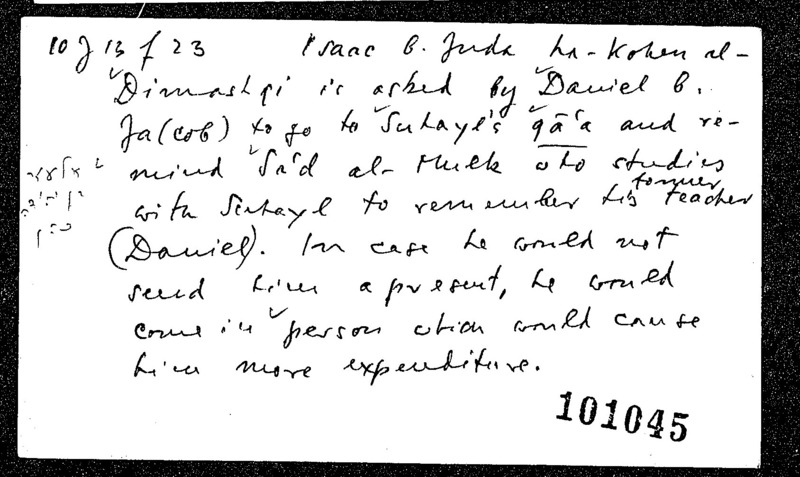 10 J 13 f 23 Isaac b. Juda ha-Kohen al-
Dimashqi is asked by Daniel b.
Ja(cob) to go to Suhayl's qā'a and re-
mind Sa'd al-Mulk who studies
with Suhayl to remember his former teacher
(Daniel). In case he would not
send him a present, he would
come in person which would cause
him more expenditure.
101045